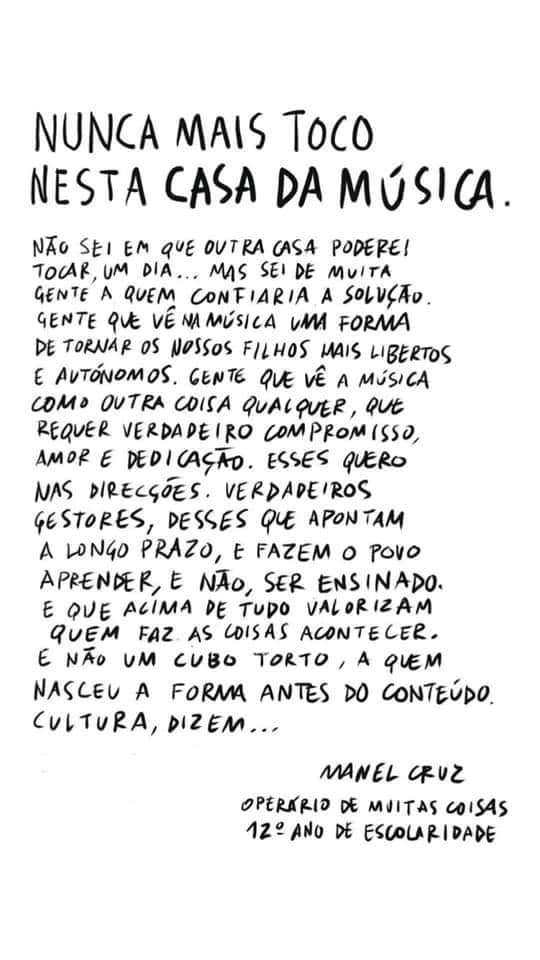 NUNCA MAIS TOCO
NESTA CASA DA MÚSICA.
NÃO SEI EM QUE OUTRA CASA PODEREI
TOCAR, UM DIA... MAS SEI DE MUITA
GENTE A QUEM CONFIARIA A SOLUÇÃO.
GENTE QUE VÊ NA MÚSICA UMA FORMA
DE TORNAR OS NOSSOS FILHOS MAIS LIBERTOS
E AUTÓNOMOS. GENTE QUE VÊ A MÚSICA
COMO OUTRA COISA QUALQUER, QUE
REQUER VERDADEIRO COMPROMISSO,
AMOR E DEDICAÇÃO. ESSES QUERO
NAS DIRECÇÕES. VERDADEIROS
GESTORES, DESSES QUE APONTAM
A LONGO PRAZO, E FAZEM O POVO
APRENDER, E NÃO, SER ENSINADO.
E QUE ACIMA DE TUDO VALORIZAM
QUEM FAZ AS COISAS ACONTECER.
E NÃO UM CUBO TORTO, A QUEM
NASCEU A FORMA ANTES DO CONTEÚDO.
CULTURA, DIZEM...
MANEL CRUZ
OPERÁRIO DE MUITAS COISAS
12º ANO DE ESCOLARIDADE